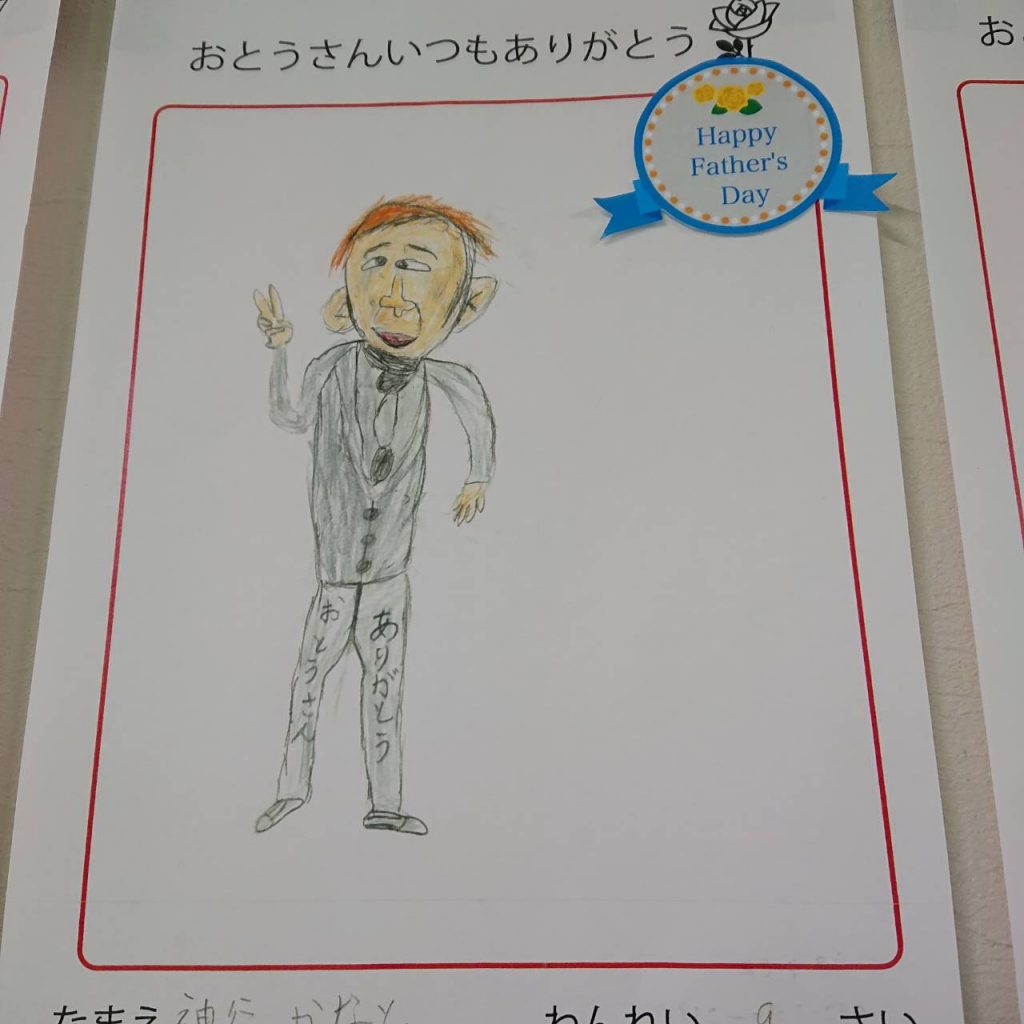 おとうさんいつもありがとう
Happy
Father's
Day
ありがとう
おとうさん
お
なまえ
ねんれい 9 さい